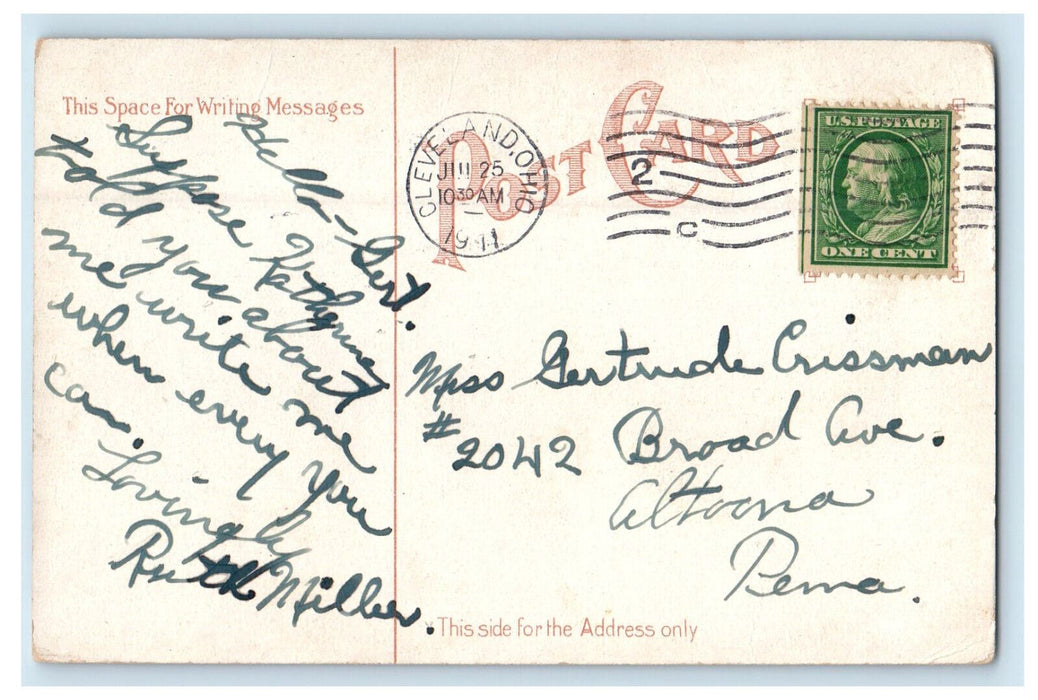 This Space For Writing Messages
Hello - Gert.
Suppose Kathryne
told you about
me write me
when every you
can.
Lovingly
Ruth Miller.
POST CARD
CLEVELAND, OHIO
JUL 25
10 30 AM
1911
2
C
U.S. POSTAGE
ONE CENT
Miss Gertrude Crissman
# 2042 Broad Ave.
Altoona
Penna.
This side for the Address only